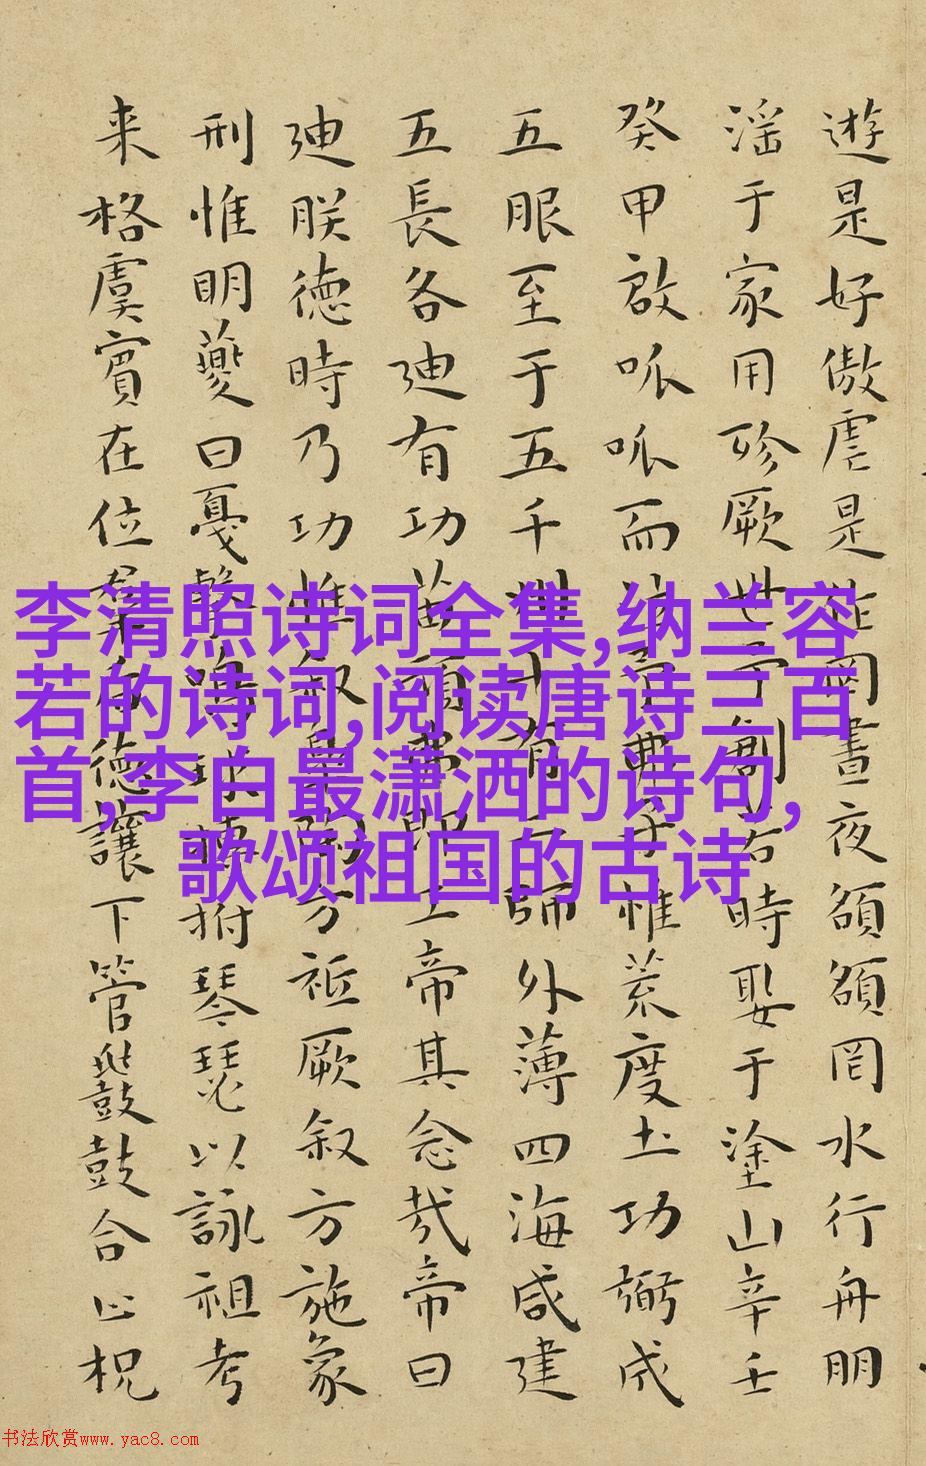 遊是好傲虐是作罔晝夜頟頟罔水行舟朋
淫于家用殄厥世予創若時娶于塗山辛壬
癸甲啟呱呱而泣予弗子惟荒度土功弼成
五服至于五千州十有二師外薄四海咸建
五長各迪有功苗頑弗即工帝其念哉帝曰
迪朕德時乃功惟叙皋陶方祗厥叙方施象
刑惟明夔曰戛擊鳴球搏拊琴瑟以詠祖考
来格虞賓在位羣后德讓下管鼗鼓合止柷
李清照诗词全集,纳兰容
若的诗词,阅读唐诗三百
首,李白最潇洒的诗句,
歌颂祖国的古诗
书法欣赏www.yac8.com